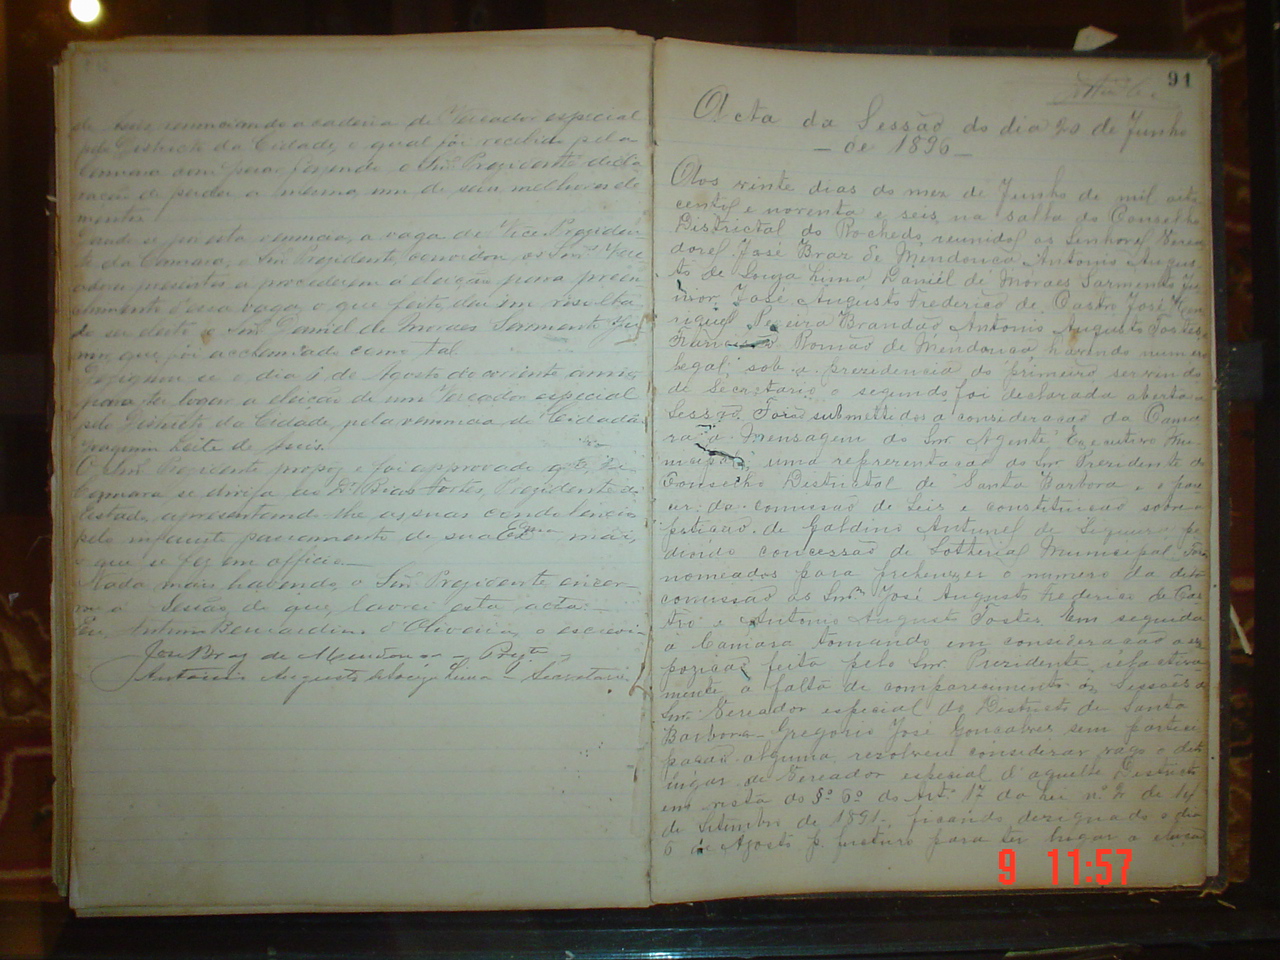 renunciando a cadeira de Vereador especial
pelo Districto da Cidade, o qual foi recebido pela
Camara com pesar fazendo o Snr. Presidente decla
ração de perder a mesma um de seus melhores ele
mentos.
por esta renuncia, a vaga de Vice Presiden
te da Camara, o Snr. Presidente convidou os Snrs. Vere
adores presentes a procederem á eleição para preen
chimento d'essa vaga, o que feito, deu em resulta
do ser eleito o Snr. Daniel de Moraes Sarmento Ju
nior, que foi acclamado como tal.
Designou se o dia de Agosto do corrente anno
para ter lugar a eleição de um Vereador especial
pelo Districto da Cidade, pela renuncia do Cidadão
Leite de
O Snr. Presidente propoz e foi approvado q. esta
Camara se dirija ao Dr. Bias Fortes, Presidente do
Estado, apresentando lhe as suas condolencias
pelo infausto passamento de sua Exma. mãi,
o que se fez em officio.
Nada mais havendo, o Snr. Presidente encer
rou a Sessão, de que, lavrei esta acta.
Eu, Antonio Bernardino d'Oliveira, o escrevi.
José Braz de Mendonça - Prezte.
Antonio Augusto de Souza Lima - Secretario
91
Acta da Sessão do dia 20 de Junho
- de 1896 -
Aos vinte dias do mez de Junho de mil oito
centos e noventa e seis, na salla do Conselho
Districtal do Rochedo reunidos os Senhores Verea
dores José Braz de Mendonça Antonio Augus
to de Souza Lima Daniel de Moraes Sarmento Ju
nior, José Augusto Frederico de Castro José Hen
riques Pereira Brandão Antonio Augusto Tostes,
Francisco Romão de Mendonça havendo numero
legal sob a prezidencia do primeiro servindo
de Secretario o segundo, foi declarada aberta a
Sessão. Forão submettidos a consideração da Cama
ra a Mensagem do Snr. Agente Executivo Mu
nicipal, uma reprezentação do Snr. Prezidente do
Conselho Districtal de Santa Barbara e o pare
cer da comissão de Leis e constituição sobre a
petição de Galdino Antunes de Siqueira pe
dindo concessão de Lotterias Municipal. Forão
nomeados para prehenxer o numero da dita
comissão os Snrs. José Augusto Frederico de Cas
tro e Antonio Augusto Tostes. Em seguida
a Camara tomando em consideração a ex
pozição feita pelo Snr. Prezidente, relativa
mente a falta de comparecimento ás Sessões do
Snr. Vereador especial do Districto de Santa
Barbara - Gregorio José Gonçalves sem partici
pação alguma, rezolveu considerar vago o dito
lugar de Vereador especial d'aquelle Districto
em vista do § 6º do Art. 17 da Lei n.º 2 de 14
de Setembro de 1891, ficando dezignado o dia
6 de Agosto p. futuro para ter lugar a eleição
9 11:57